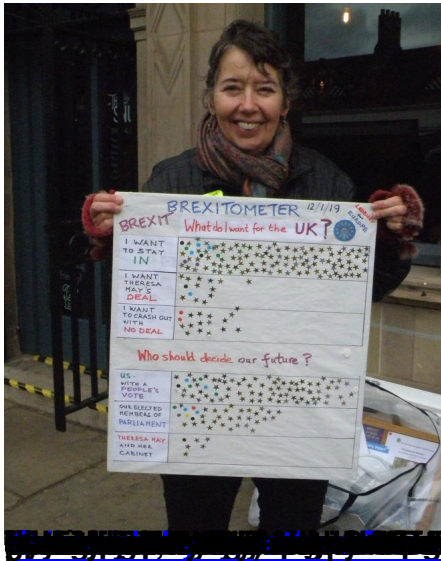 BREXITOMETER 12/1/19
BREXIT What do I want for the UK?
I WANT
TO STAY
IN
I WANT
THERESA
MAY'S
DEAL
I WANT
TO CRASH OUT
WITH
NO DEAL
Who should decide our future?
US-
WITH A
PEOPLE'S
VOTE
OUR ELECTED
MEMBERS OF
PARLIAMENT
THERESA MAY
AND HER
CABINET